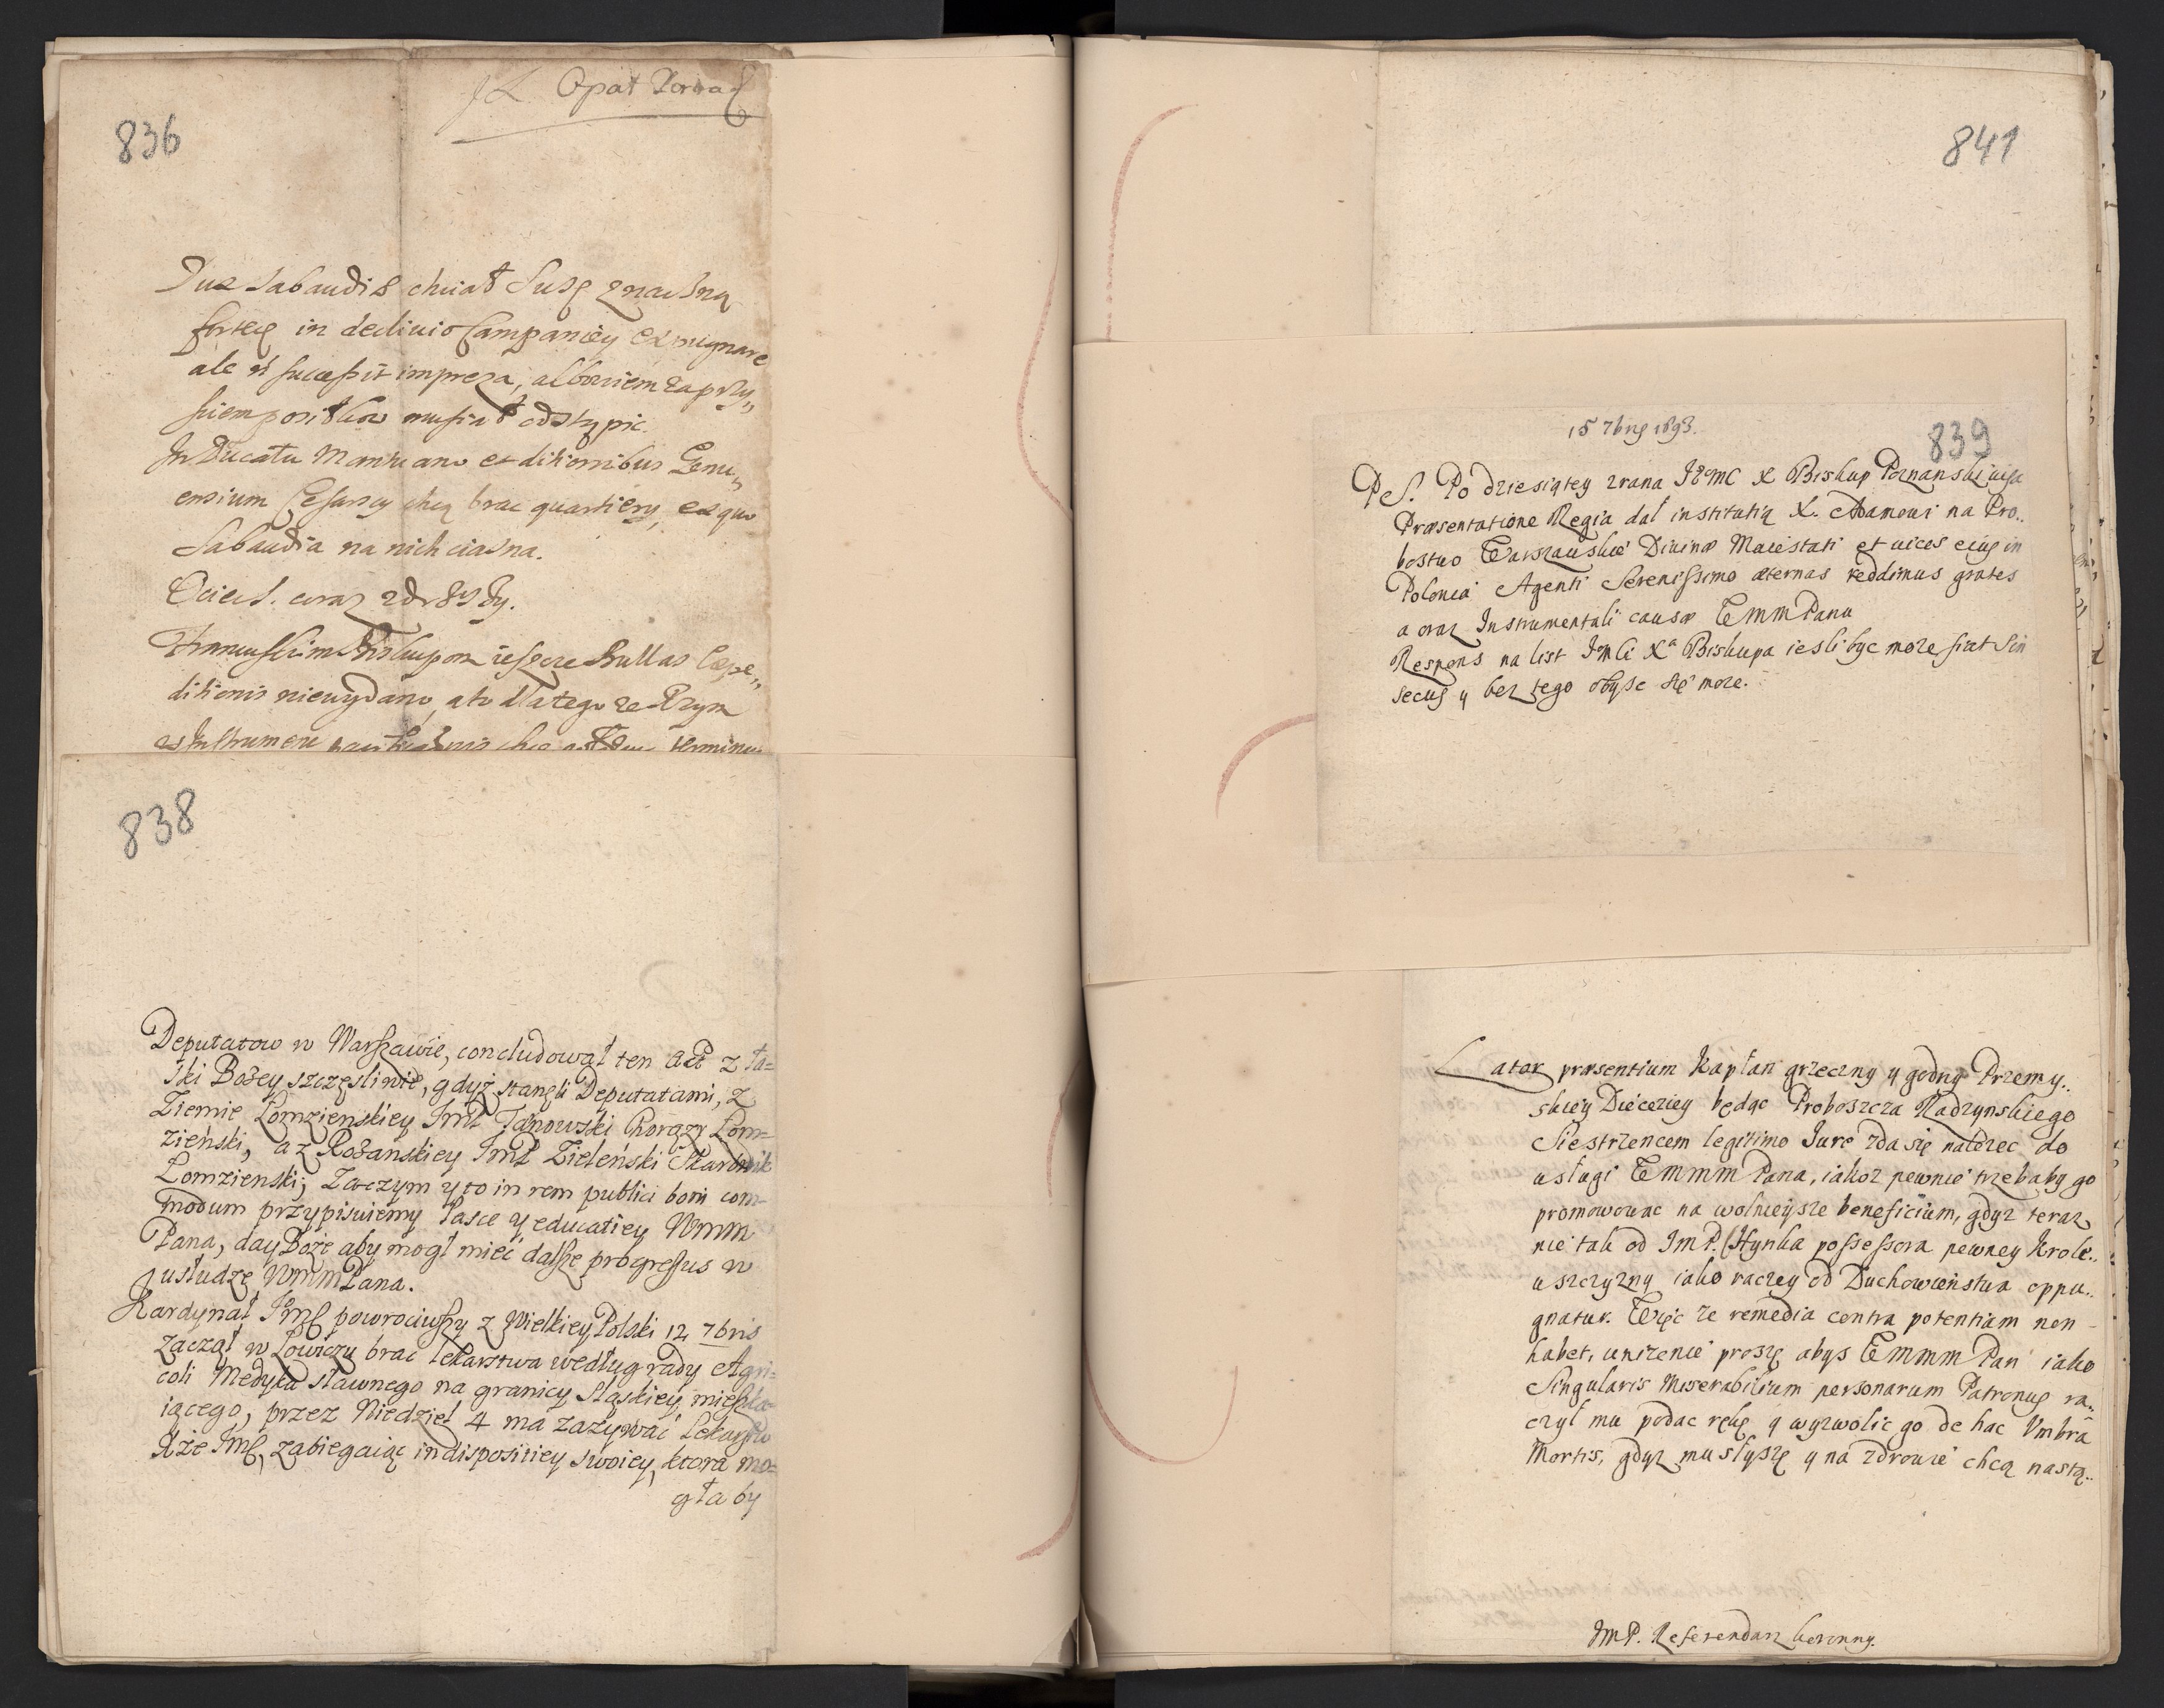 836
Opat
Dux Sabaudiæ chciał Susę znaczną
fortecę in declivio Campaniey expugnare
ale nō successit impreza, albowiem za przy„
sciem posiłkow musiał odstąpic.
In Ducatu Mantuano et ditionibus Genu„
ensium Cesarscy chcą brac quartiery, ex quo
Sabaudia na nich ciasna.
Ociec S. coraz zdrowszy.
Biskupom ieszcze Bullas Expe„
ditionis niewydano, a to dlatego ze Rzym
838
Deputatow w Warszawie, concludował ten act z ła=
ski Bożey szczęsliwie, gdyż stanęli Deputatami, z
Ziemie Łomzienskiey ImP Janowski Chorąży Łom=
zieński, a z Rożanskiey ImP Zieleński Skarbnik
Łomzienski; Zaczym y to in rem publici boni com=
modum przypisuiemy łasce y educatiey Wmm
Pana, day Boże aby mogł mieć dalsze progressus w
usłudze WmmPana.
Kardynał Imć powrociwszy z Wielkiey Polski 12 7bris
zaczął w Łowiczu brac lekarstwa według rady Agri=
coli Medyka sławnego na granicy Sląskiey mieszka=
iącego, przez Niedziel 4 ma zażywać Lekarstw
Xże Imć, zabiegaiąc indispositiey swoiey, ktora mo=
gła by
841
15 7bris 1693.
839
PS. Po dziesiątey zrana IEmC X Biskup Poznanski
Præsentatione Regia dał institutią X. Adamowi na Pro..
bostwo Warszauskie Divinæ Maiestati et vices eius in
Polonia Agenti Serenissimo æternas reddimus grates
a oraz Instrumentali causæ EmmPanu
Respons na list ImCi Xa Biskupa iesli byc moze fiat Sin
secus y bez tego obysc się moze.
Lator præsentium Kapłan grzeczny y godny Przemy..
skiey Dieceziey będąc Proboszcza Radzynskiego
Siestrzencem legitimo Iure zda się nalezec do
usługi Emmm Pana, iakoz pewnie trzebaby go
promowowac na wolnieysze beneficium, gdyz teraz
nie tak od ImP. Hynka possessora pewney Krole..
wszczyzny iako raczey od Duchowieństwa oppu..
gnatur. Więc ze remedia contra potentiam non -
habet, unizenie proszę abys Emmm Pan iako
Singularis Miserabilium personarum Patronus ra..
czył mu podac rękę y wyzwolic go de hac Umbra
Mortis, gdyz mu słyszę y na zdrowie chcą nastą..
ImP. Referendarz koronny.